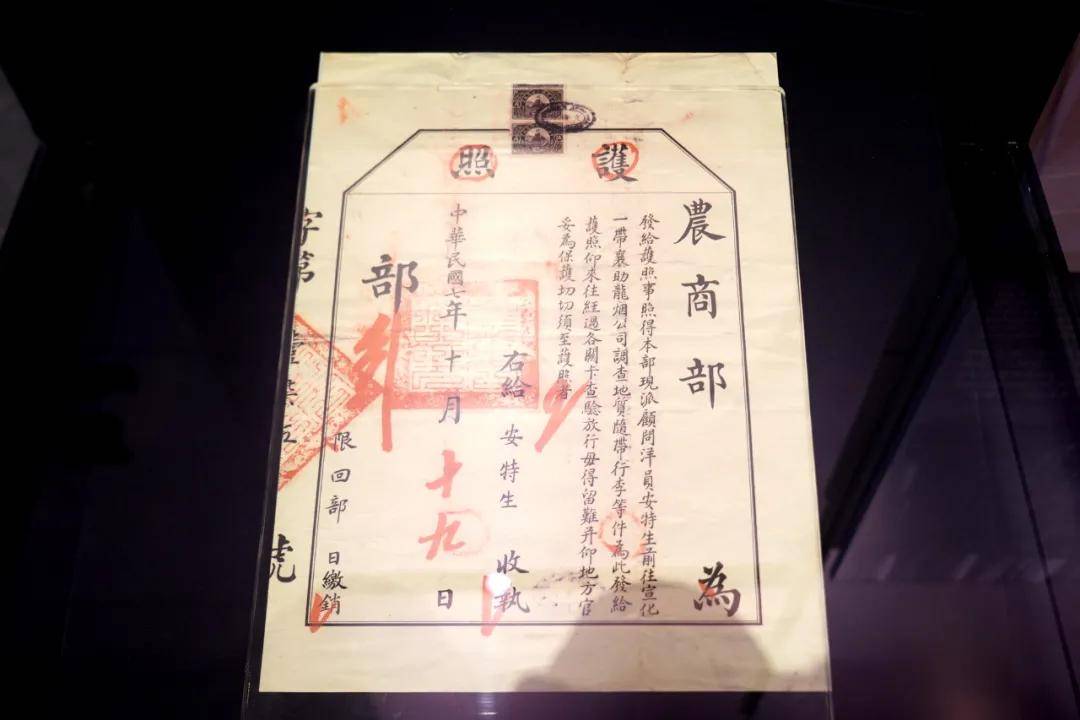 護照
農商部 為
發給護照事照得本部現派顧問洋員安特生前往宣化
一帶襄助龍烟公司調查地質隨帶行李等件為此發給
護照仰來往經過各關卡查驗放行毋得留難并仰地方官
妥為保護切切須至護照者
右給 安特生 收執
中華民國七年 十 月 十九 日
部
限回部 日繳銷
字第 柒 五 號